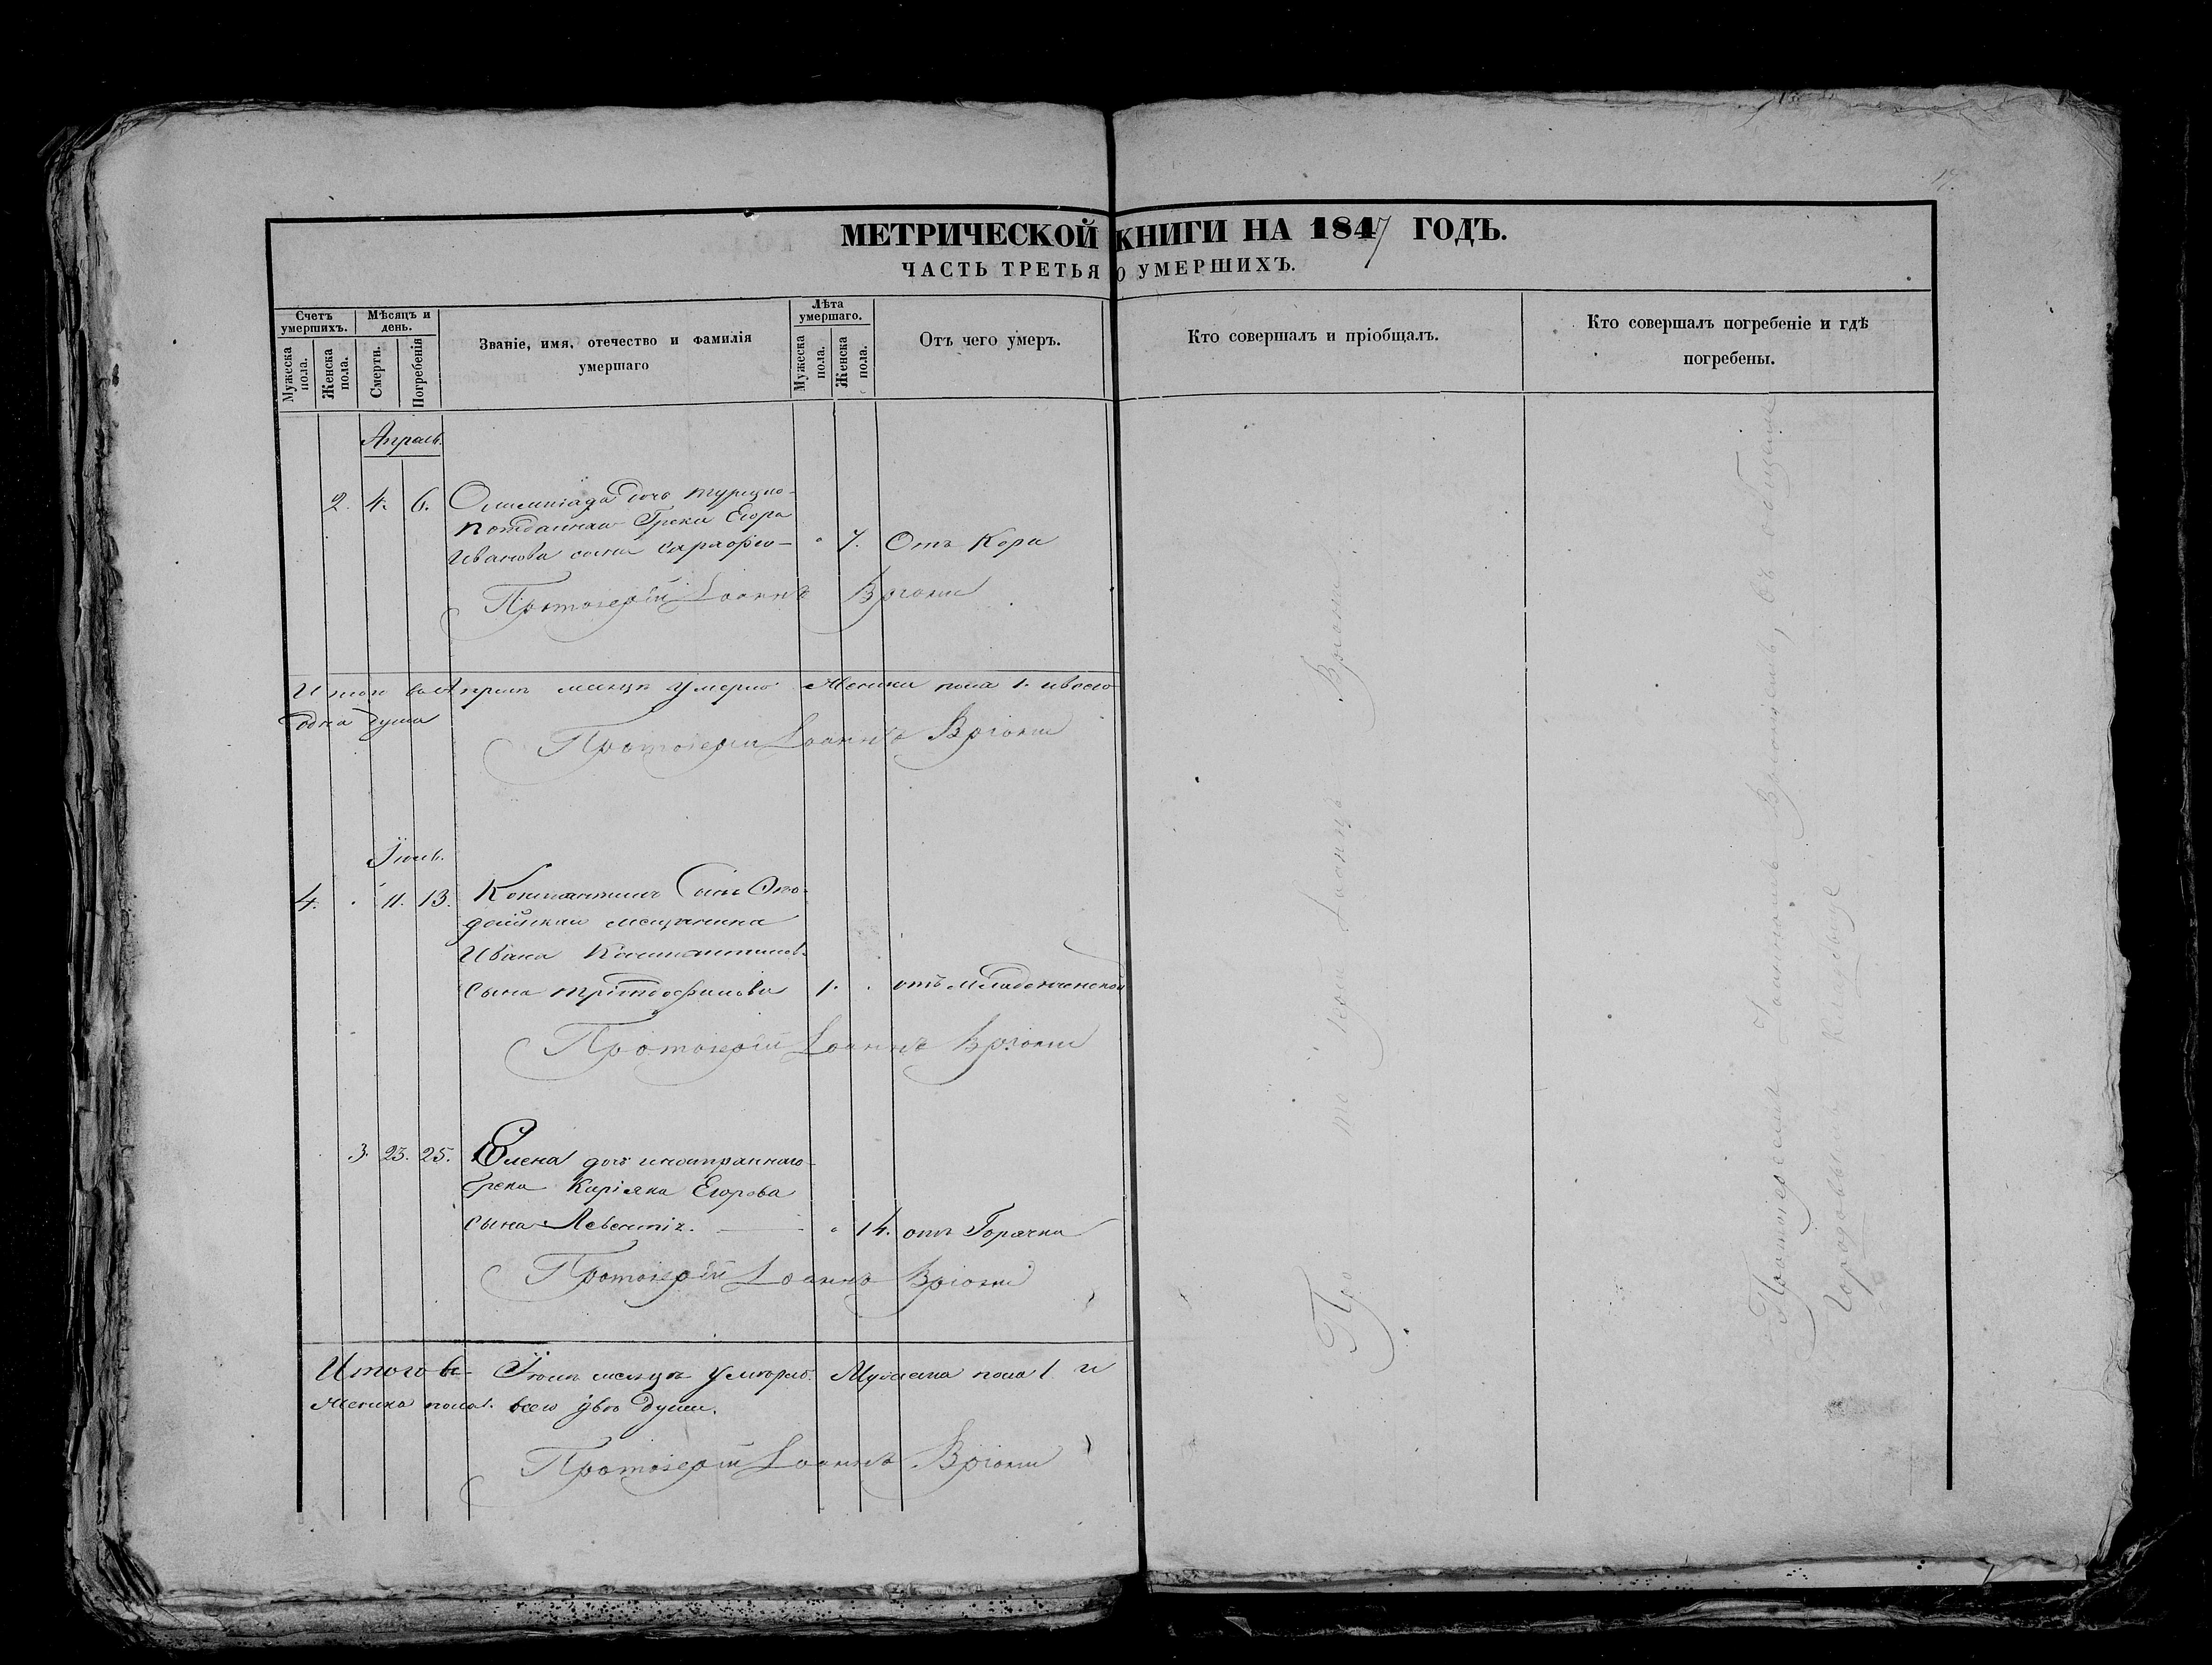 17.
МЕТРИЧЕСКОЙ КНИГИ НА 1847 ГОДЪ.
ЧАСТЬ ТРЕТЬЯ О УМЕРШИХЪ.
Счетъ умершихъ.
Мужеска пола.
Женска пола.
Мѣсяцъ и день.
Смерти.
Погребенія
Званіе, имя, отечество и фамилія умершаго
Лѣта умершаго.
Мужеска пола.
Женска пола.
Отъ чего умеръ.
Кто совершалъ и пріобщалъ.
Кто совершалъ погребеніе и гдѣ погребены.
Апрель.
2. 4. 6. Олимпіада дочь турецко-
подданнаго Грека Егора
Иванова сына 7. Отъ Кори
Протоіерей Іоаннъ Вріони
Итого въ Апрелѣ месяцѣ умерло Женска пола 1. и всего
одна душа
Протоіерей Іоаннъ Вріони
4. 11. 13. Константинъ Сынъ
мещанина
Ивана Константинов.
Сына 1. отъ Младенческой
Протоіерей Іоаннъ Вріони
3. 23. 25. Елена дочь иностраннаго
Грека Киріяка Егорова
сына 14. отъ Горячки
Протоіерей Іоаннъ Вріони
Итого въ месяцѣ умерло Мужеска пола 1 и
Женска пола 1. всего двѣ души.
Протоіерей Іоаннъ Вріони
Протоіерей Іоаннъ Вріони
Протоіереемъ Іоанномъ Вріониемъ, на общемъ
Городовымъ Кладбище